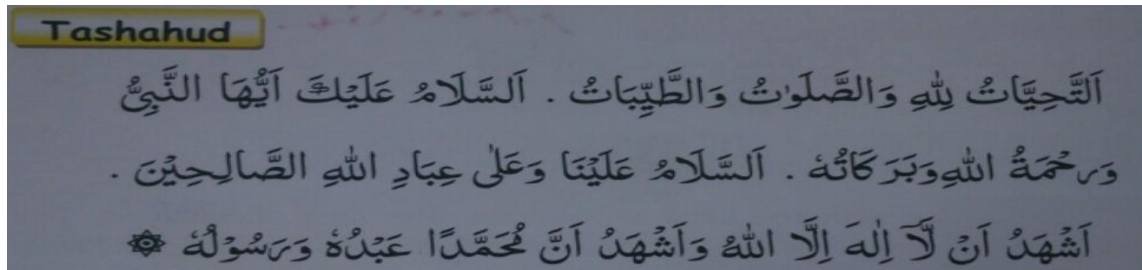 Tashahud
اَلتَّحِيَّاتُ لِلّٰهِ وَالصَّلَوٰتُ وَالطَّيِّبَاتُ . اَلسَّلَامُ عَلَيْكَ اَيُّهَا النَّبِيُّ
وَرَحْمَةُ اللّٰهِ وَبَرَكَاتُهٗ . اَلسَّلَامُ عَلَيْنَا وَعَلٰى عِبَادِ اللّٰهِ الصَّالِحِيْنَ .
اَشْهَدُ اَنْ لَّآ اِلٰهَ اِلَّا اللّٰهُ وَاَشْهَدُ اَنَّ مُحَمَّدًا عَبْدُهٗ وَرَسُوْلُهٗ ۞